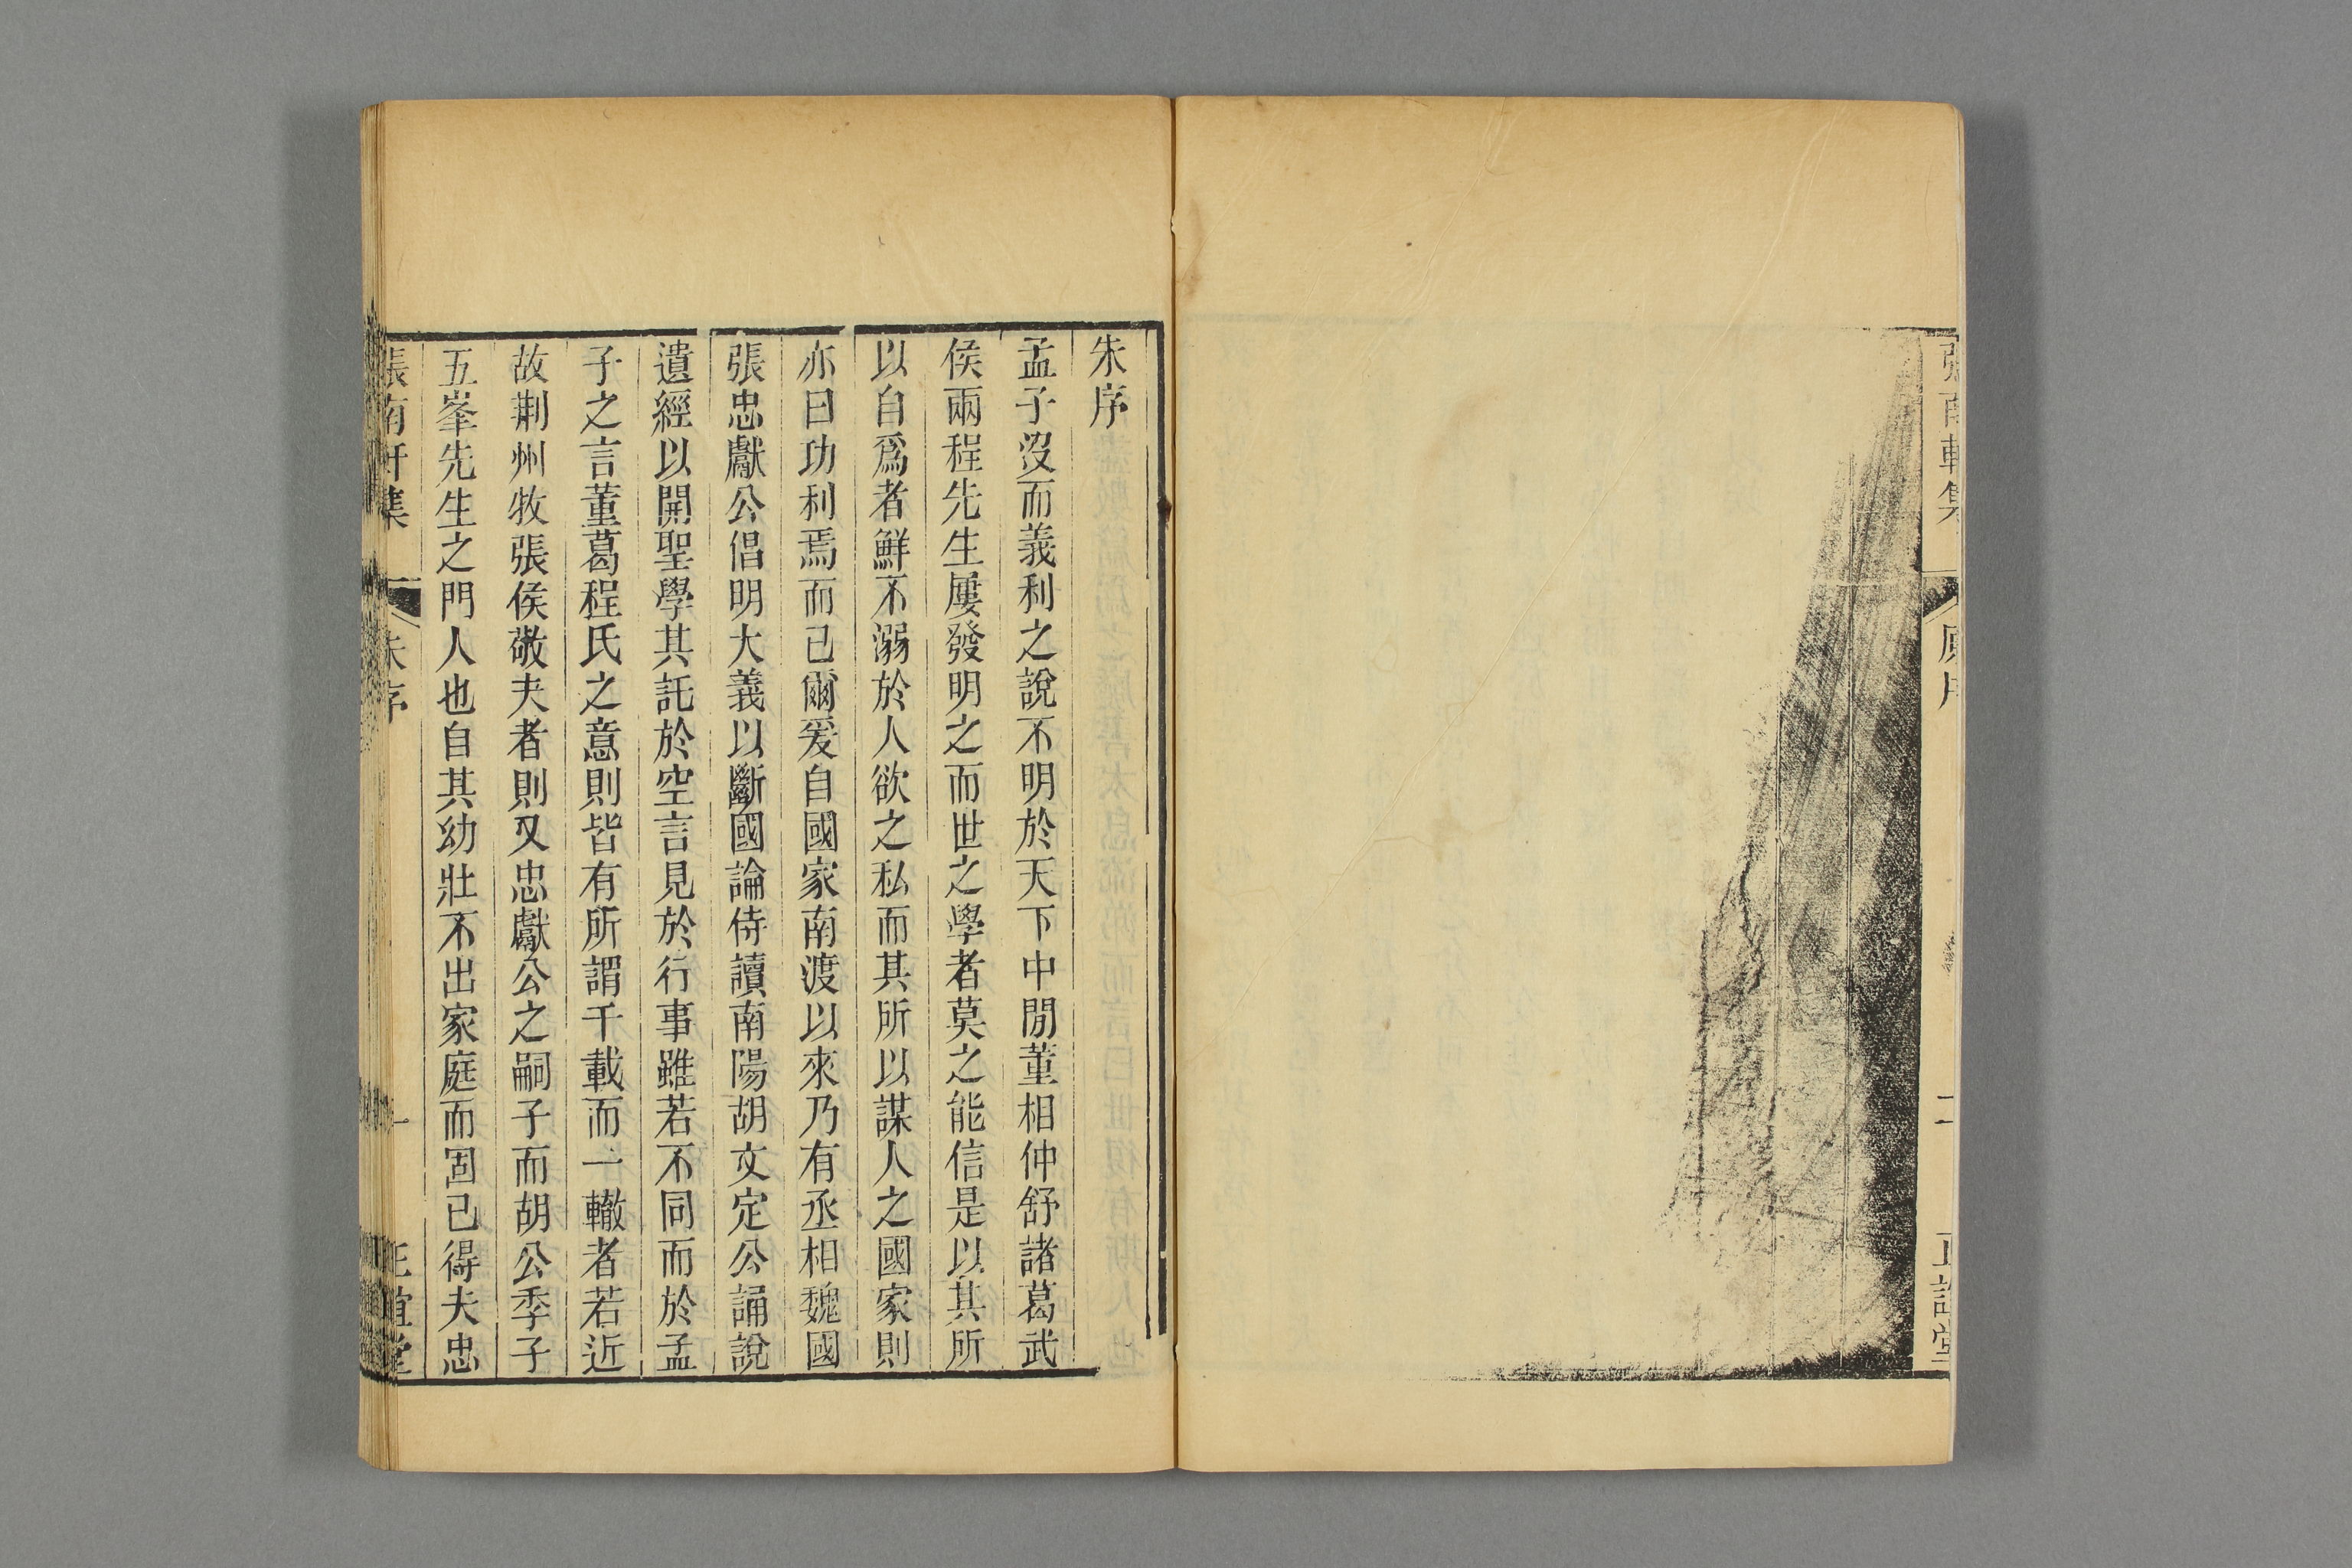 張南軒集 原序 二 正誼堂
朱序
孟子沒而義利之說不明於天下中閒董相仲舒諸葛武
侯兩程先生屢發明之而世之學者莫之能信是以其所
以自爲者鮮不溺於人欲之私而其所以謀人之國家則
亦曰功利焉而已爾爰自國家南渡以來乃有丞相魏國
張忠獻公倡明大義以斷國論侍讀南陽胡文定公誦說
遺經以開聖學其託於空言見於行事雖若不同而於孟
子之言董葛程氏之意則皆有所謂千載而一轍者若近
故荆州牧張侯敬夫者則又忠獻公之嗣子而胡公季子
五峯先生之門人也自其幼壯不出家庭而固已得夫忠
張南軒集 朱序 一 正誼堂